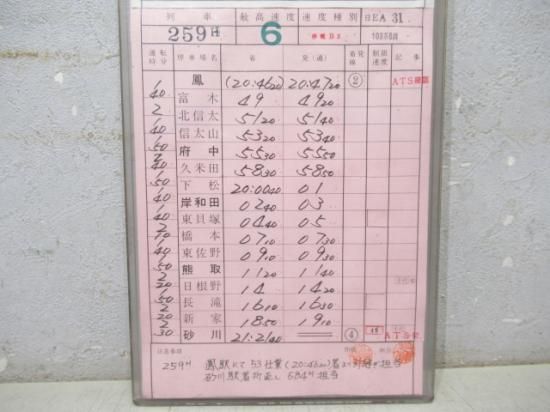 列車 最高速度 速度種別 日EA 31
259H 6 停電B2
運転時分 停車場名 着 発(通) 着発線 制限速度 記事
鳳 (20:4620) 20:4720 ② ATS確認
1/40 富木 49 4920
2 北信太 5120 5140
1/40 信太山 5320 5340
1/50 府中 5530 5550
2/40 久米田 5830 5850
1/50 下松 20:0040 01
1/40 岸和田 0240 03
1/40 東貝塚 0440 05
2/10 橋本 0710 0730
1/40 東佐野 0910 0930
1/50 熊取 1120 1140
2/20 日根野 14 1420
1/50 長滝 1610 1630
2/20 新家 1850 1910
2/30 砂川 21:2140 ④ 15
注意事項
259H 鳳駅にて53仕業(20:4620)着
砂川駅着折返し 684H担当